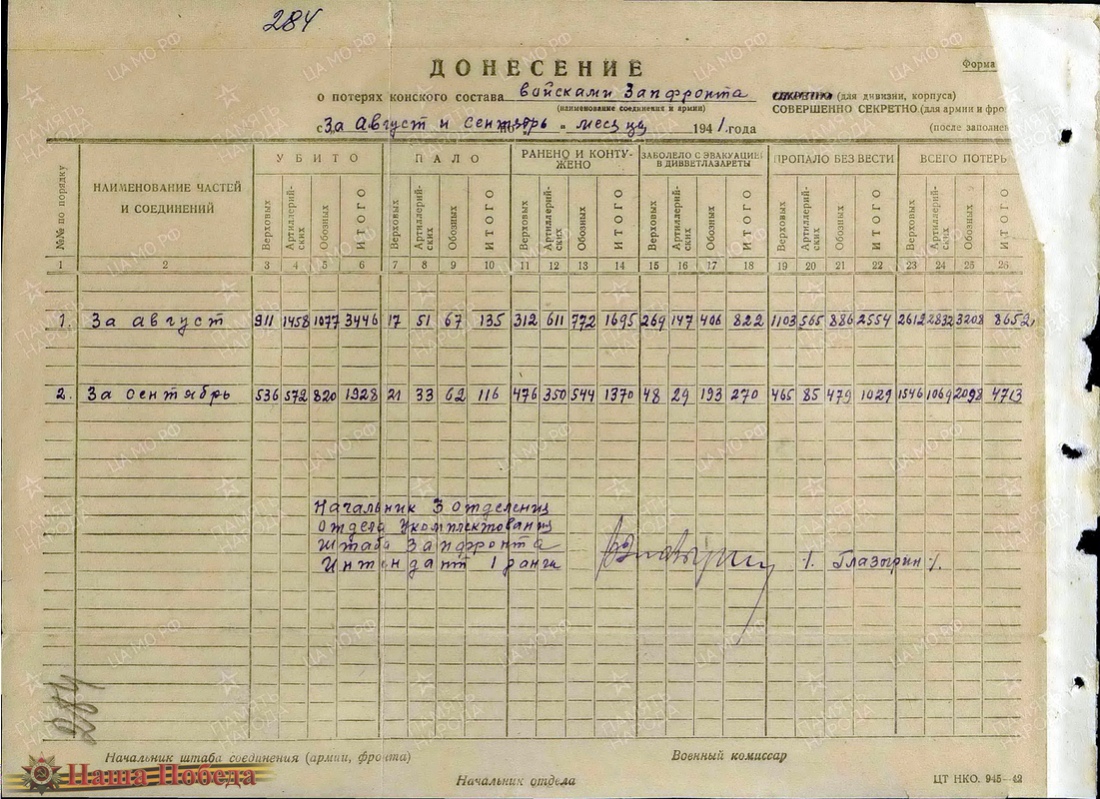 284
ДОНЕСЕНИЕ
Форма
о потерях конского состава войсками Запфронта
(наименование соединения и армии)
СЕКРЕТНО (для дивизии, корпуса)
СОВЕРШЕННО СЕКРЕТНО (для армии и фро
с За Август и Сентябрь " месяца 1941 года
(после заполне
№№ по порядку
НАИМЕНОВАНИЕ ЧАСТЕЙ И СОЕДИНЕНИЙ
УБИТО ПАЛО РАНЕНО И КОНТУЖЕНО ЗАБОЛЕЛО С ЭВАКУАЦИЕЙ В ДИВВЕТЛАЗАРЕТЫ ПРОПАЛО БЕЗ ВЕСТИ ВСЕГО ПОТЕРЬ
Верховых Артиллерийских Обозных ИТОГО Верховых Артиллерийских Обозных ИТОГО Верховых Артиллерийских Обозных ИТОГО Верховых Артиллерийских Обозных ИТОГО Верховых Артиллерийских Обозных ИТОГО Верховых Артиллерийских Обозных ИТОГО
1 2 3 4 5 6 7 8 9 10 11 12 13 14 15 16 17 18 19 20 21 22 23 24 25 26
1. За август 911 1458 1077 3446 17 51 67 135 312 611 772 1695 269 147 406 822 1103 565 886 2554 2612 2832 3208 8652
2. За сентябрь 536 572 820 1928 21 33 62 116 476 350 544 1370 48 29 193 270 465 85 479 1029 1546 1069 2098 4713
Начальник 3 отделения
отдела укомплектования
штаба Запфронта
Интендант 1 ранга ·/. Глазырин ·/.
284
Начальник штаба соединения (армии, фронта)
Военный комиссар
Начальник отдела
ЦТ НКО. 945—42
Наша Победа
ПАМЯТЬ НАРОДА
ЦА МО.РФ